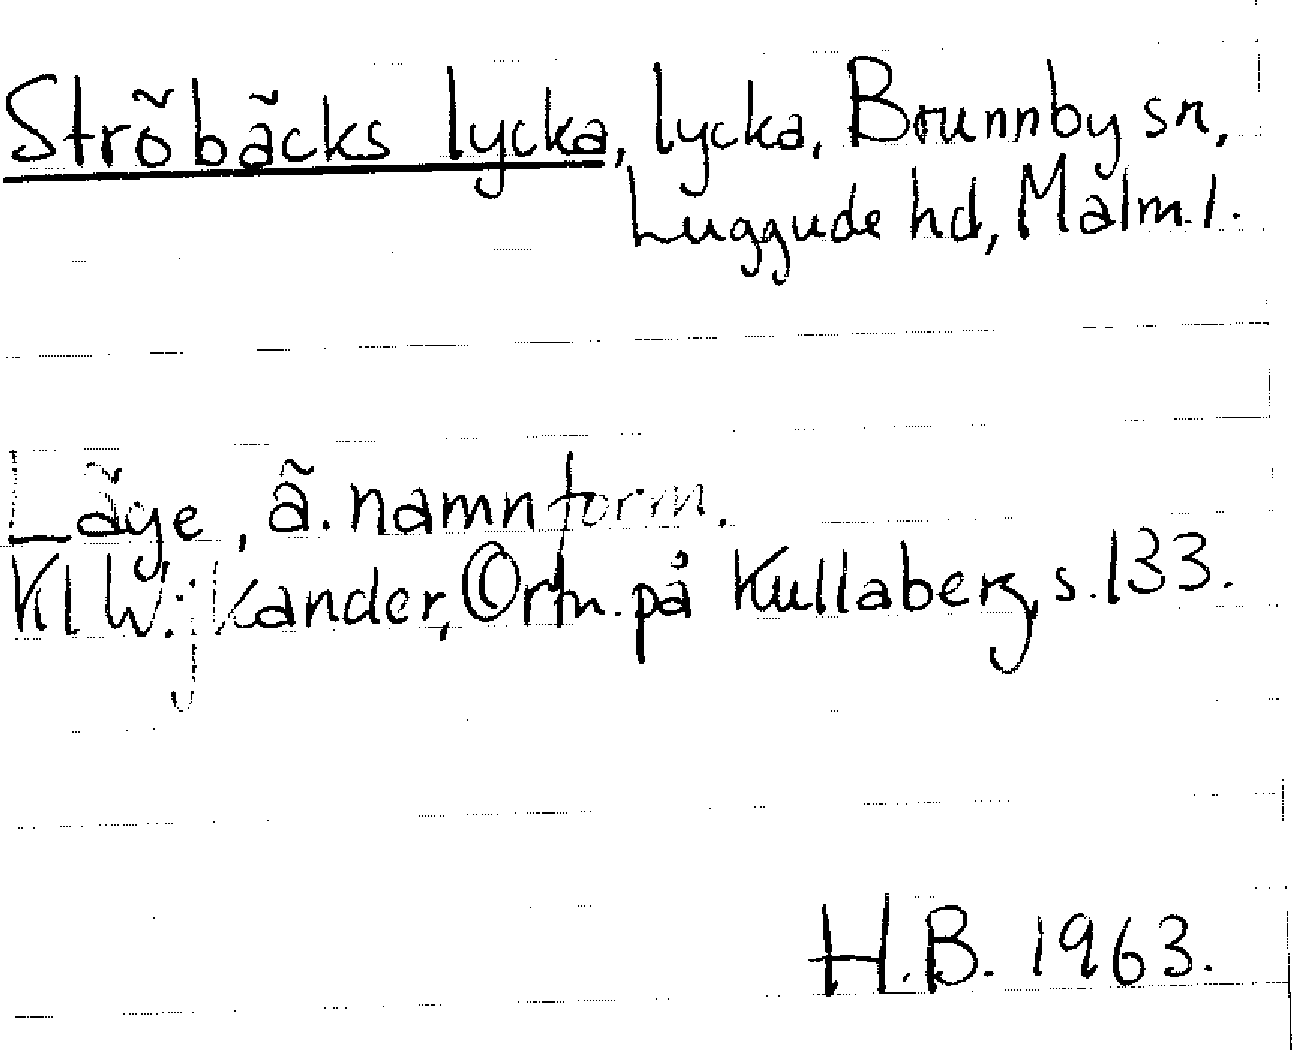 Ströbäcks lycka, lycka, Brunnby sn,
Luggude hd, Malm. l.
Läge, ä. namnform.
Kl Wijkander, Ortn. på Kullaberg, s. 133.
H.B. 1963.